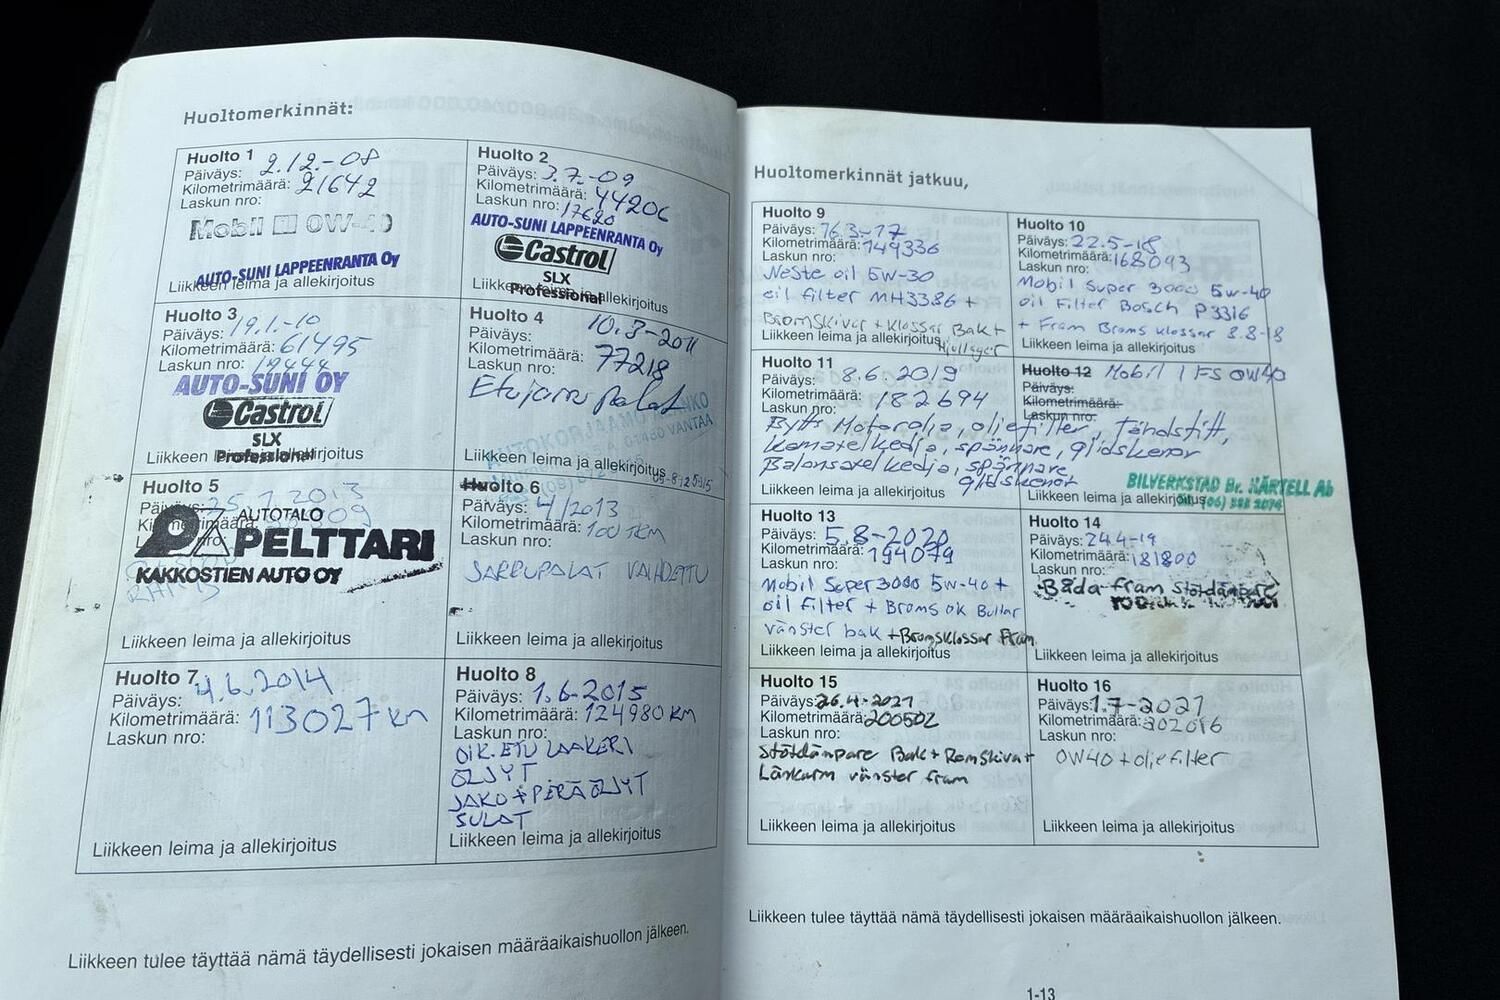 Huoltomerkinnät:
Huolto 1
Päiväys: 2.12.-08
Kilometrimäärä: 21642
Laskun nro:
Mobil 1 0W-40
AUTO-SUNI LAPPEENRANTA Oy
Liikkeen leima ja allekirjoitus
Huolto 2
Päiväys: 3.7.-09
Kilometrimäärä: 44206
Laskun nro: 17620
AUTO-SUNI LAPPEENRANTA Oy
Castrol
SLX
Professional
Liikkeen leima ja allekirjoitus
Huolto 3
Päiväys: 19.1.-10
Kilometrimäärä: 61495
Laskun nro: 19444
AUTO-SUNI OY
Castrol
SLX
Professional
Liikkeen leima ja allekirjoitus
Huolto 4
Päiväys: 10.3-2011
Kilometrimäärä: 77218
Laskun nro:
Etujarru palat
VANTAA
Liikkeen leima ja allekirjoitus
Huolto 5
Päiväys: 25.7.2013
Kilometrimäärä:
AUTOTALO
PELTTARI
KAKKOSTIEN AUTO OY
Liikkeen leima ja allekirjoitus
Huolto 6
Päiväys: 4/2013
Kilometrimäärä: 100 TKM
Laskun nro:
JARRUPALAT VAIHDETTU
Liikkeen leima ja allekirjoitus
Huolto 7
Päiväys: 4.6.2014
Kilometrimäärä: 113027 km
Laskun nro:
Liikkeen leima ja allekirjoitus
Huolto 8
Päiväys: 1.6-2015
Kilometrimäärä: 124980 KM
Laskun nro:
OIK. ETU LAAKERI
ÖLJYT
JAKO + PERÄ ÖLJYT
SULAT
Liikkeen leima ja allekirjoitus
Liikkeen tulee täyttää nämä täydellisesti jokaisen määräaikaishuollon jälkeen.
Huoltomerkinnät jatkuu,
Huolto 9
Päiväys: 16.3-17
Kilometrimäärä: 149336
Laskun nro:
Neste oil 5W-30
oil filter MH3386 +
Bromskivor + Klossar Bak +
Hjullager
Liikkeen leima ja allekirjoitus
Huolto 10
Päiväys: 22.5-18
Kilometrimäärä: 168093
Laskun nro:
Mobil Super 3000 5w-40
oil Filter Bosch P3316
+ Fram Broms klossar 8.8-18
Liikkeen leima ja allekirjoitus
Huolto 11
Päiväys: 8.6.2019
Kilometrimäärä: 182694
Laskun nro:
Huolto 12 Mobil 1 FS 0W40
Päiväys:
Kilometrimäärä:
Laskun nro:
Bytts Motorolja, oljefilter, Tändstift,
Kamaxelkedja, spännare, glidskenor
Balansaxelkedja, spännare
glidskenor
BILVERKSTAD Br. KÄRTELL Ab
Liikkeen leima ja allekirjoitus
Liikkeen leima ja allekirjoitus
Huolto 13
Päiväys: 5.8-2020
Kilometrimäärä: 194079
Laskun nro:
Mobil Super 3000 5w-40 +
oil filter + Broms ok Byttar
vänster bak + Bromsklossar Fram
Liikkeen leima ja allekirjoitus
Huolto 14
Päiväys: 24.4-19
Kilometrimäärä: 181800
Laskun nro:
Båda fram stötdämpare
Liikkeen leima ja allekirjoitus
Huolto 15
Päiväys: 26.4-2021
Kilometrimäärä: 200502
Laskun nro:
Stötdämpare Bak + Remskivat
Länkarm vänster fram
Liikkeen leima ja allekirjoitus
Huolto 16
Päiväys: 1.7-2021
Kilometrimäärä: 202016
Laskun nro:
0W40 + oljefilter
Liikkeen leima ja allekirjoitus
Liikkeen tulee täyttää nämä täydellisesti jokaisen määräaikaishuollon jälkeen.
1-13